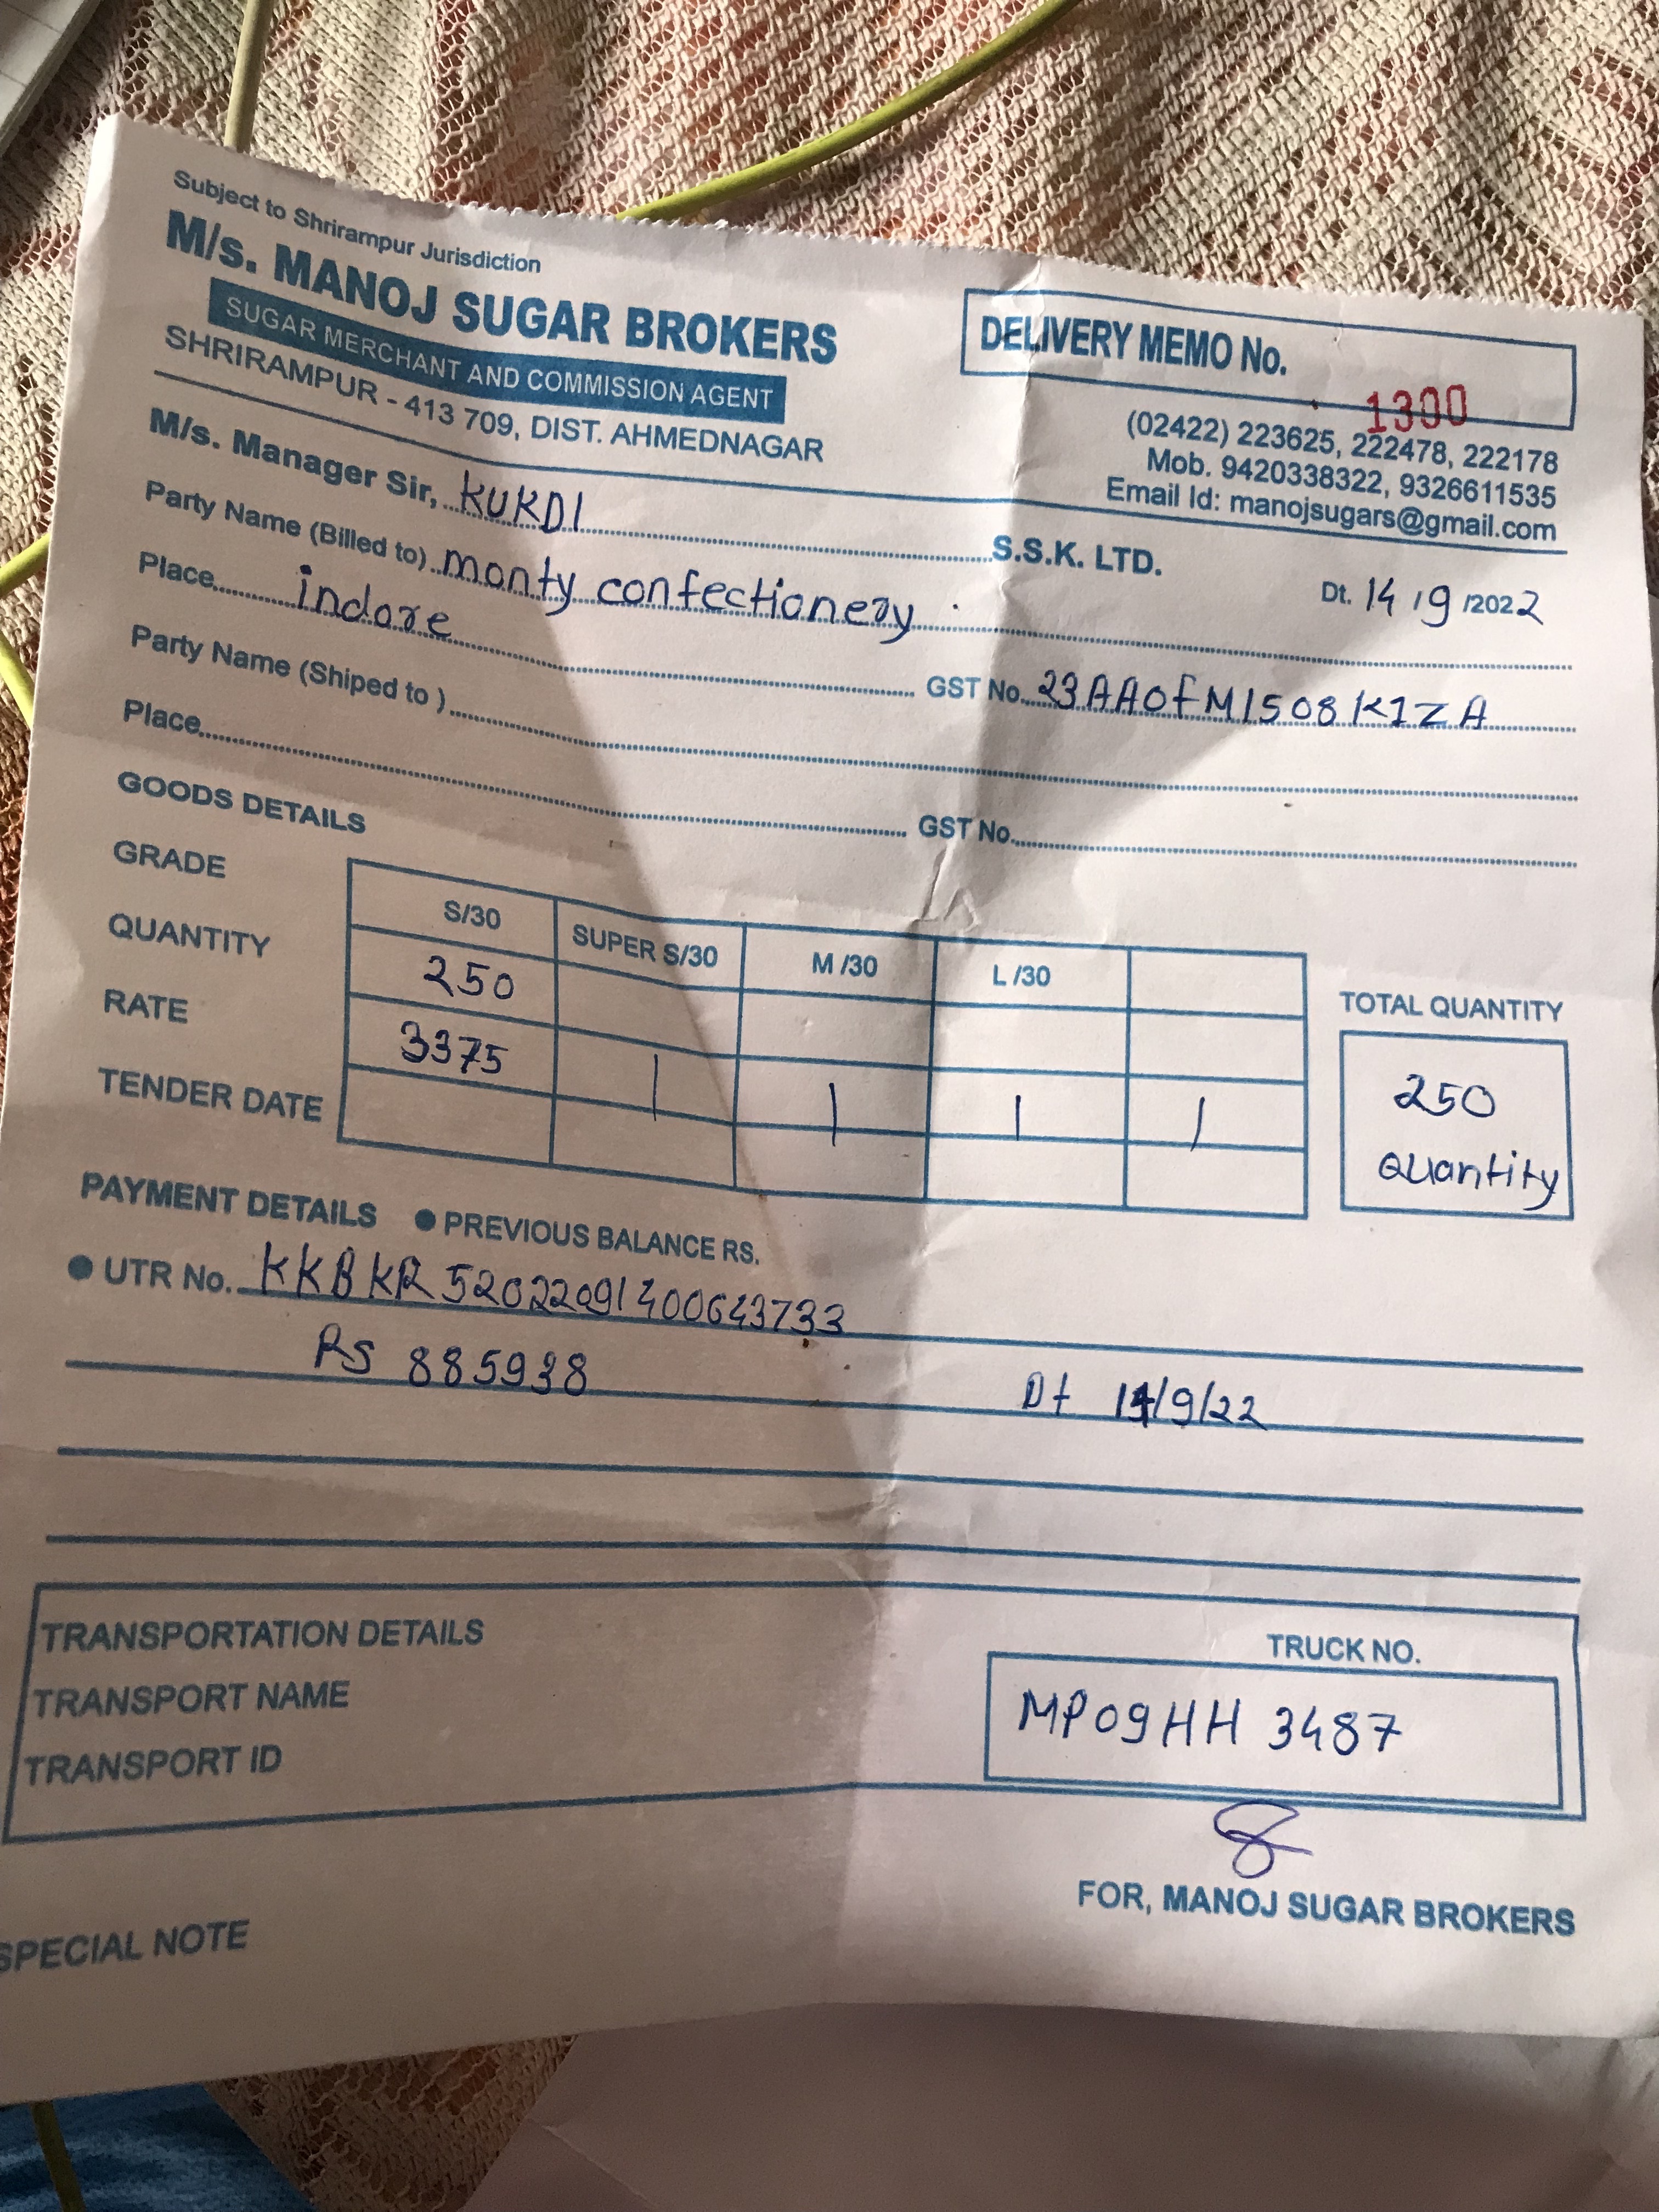 Subject to Shrirampur Jurisdiction
M/s. MANOJ SUGAR BROKERS
SUGAR MERCHANT AND COMMISSION AGENT
SHRIRAMPUR - 413 709, DIST. AHMEDNAGAR
DELIVERY MEMO No.
1300
(02422) 223625, 222478, 222178
Mob. 9420338322, 9326611535
Email Id: manojsugars@gmail.com
M/s. Manager Sir, KUKDI S.S.K. LTD.
Dt. 14/9/2022
Party Name (Billed to) monty confectionery
Place indore GST No. 23AAOFM1508K1ZA
Party Name (Shiped to )
Place GST No.
GOODS DETAILS
GRADE S/30 SUPER S/30 M/30 L/30
QUANTITY 250
RATE 3375
TENDER DATE
TOTAL QUANTITY
250
Quantity
PAYMENT DETAILS ● PREVIOUS BALANCE RS.
● UTR No. KKBKR52022091400643733
RS 885938 Dt 14/9/22
TRANSPORTATION DETAILS
TRANSPORT NAME
TRANSPORT ID
TRUCK NO.
MP09HH 3487
FOR, MANOJ SUGAR BROKERS
SPECIAL NOTE